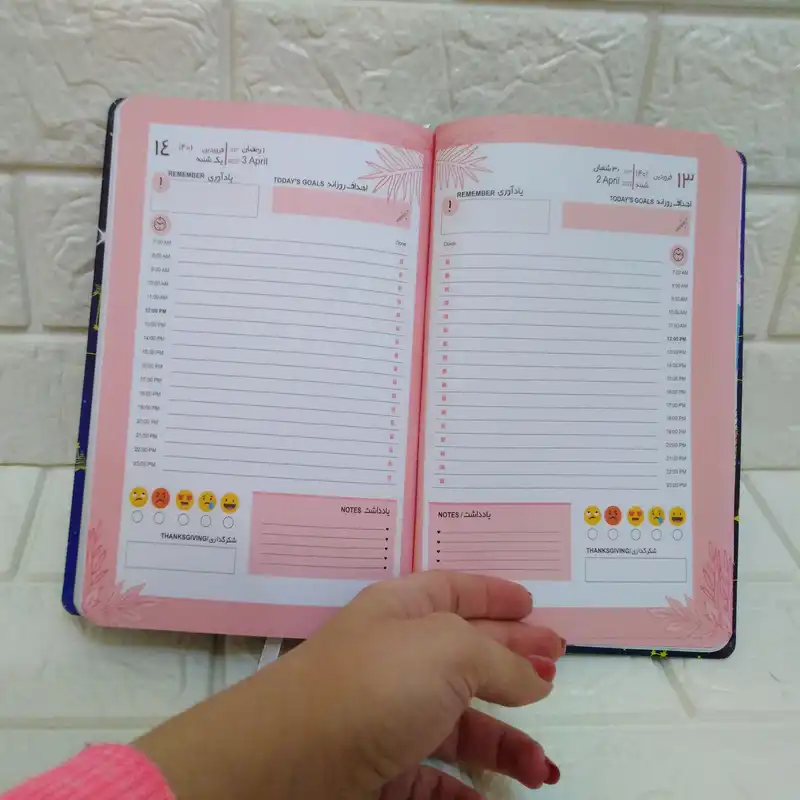 ۱۳ فروردین ۱۴۰۱ ۳۰ شعبان
شنبه 2 April 2022
REMEMBER یادآوری
!
TODAY'S GOALS اهداف روزانه
Check
7:00 AM
8:00 AM
9:00 AM
10:00 AM
11:00 AM
12:00 PM
13:00 PM
14:00 PM
15:00 PM
16:00 PM
17:00 PM
18:00 PM
19:00 PM
20:00 PM
21:00 PM
22:00 PM
23:00 PM
NOTES / یادداشت
THANKSGIVING/شکرگذاری
۱۴ فروردین ۱۴۰۱ ۱ رمضان
یک‌شنبه 3 April 2022
REMEMBER یادآوری
!
TODAY'S GOALS اهداف روزانه
7:00 AM
8:00 AM
9:00 AM
10:00 AM
11:00 AM
12:00 PM
13:00 PM
14:00 PM
15:00 PM
16:00 PM
17:00 PM
18:00 PM
19:00 PM
20:00 PM
21:00 PM
22:00 PM
23:00 PM
NOTES یادداشت
THANKSGIVING/شکرگذاری